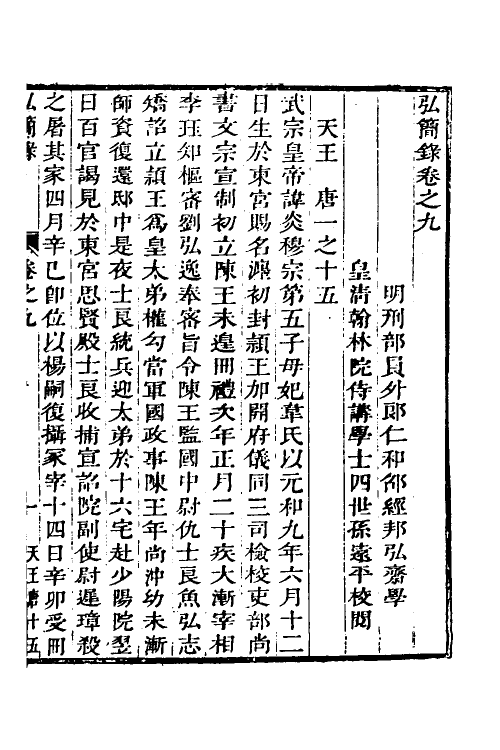 弘簡錄卷之九
明刑部員外郎仁和邵經邦弘齋學
皇清翰林院侍講學士四世孫遠平校閱
天王　唐一之十五
武宗皇帝諱炎穆宗第五子母妃韋氏以元和九年六月十二
日生於東宮賜名瀍初封潁王加開府儀同三司檢校吏部尚
書文宗宣制初立陳王未遑冊禮次年正月二十疾大漸宰相
李珏知樞密劉弘逸奉密旨令陳王監國中尉仇士良魚弘志
矯詔立潁王為皇太弟權勾當軍國政事陳王年尚沖幼未漸
師資復還邸中是夜士良統兵迎太弟於十六宅赴少陽院翌
日百官謁見於東宮思賢殿士良收捕宣詔院副使尉遲璋殺
之屠其家四月辛巳卽位以楊嗣復攝冢宰十四日辛卯受冊
弘簡錄　卷之九　一　天王唐十五